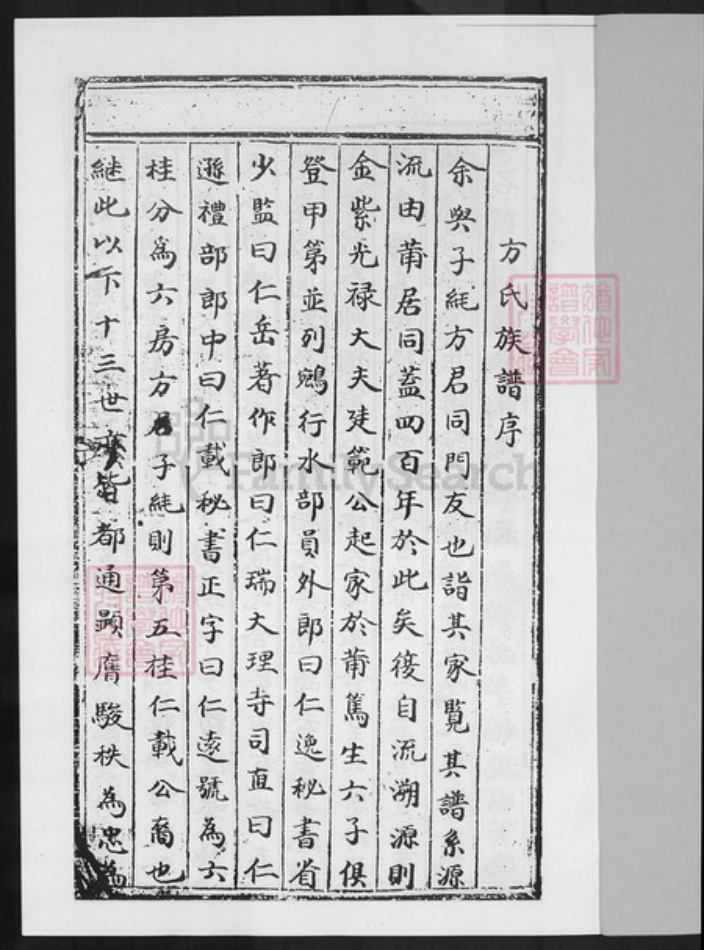 方氏族譜序
余與子純方君同門友也詣其家覽其譜系源
流由莆居同葢四百年於此矣後自流溯源則
金紫光禄大夫廷範公起家於莆篤生六子俱
登甲第並列鵷行水部員外郎曰仁逸秘書省
少監曰仁岳著作郎曰仁瑞大理寺司直曰仁
遜禮部郎中曰仁載秘書正字曰仁遠號為六
桂分為六房方君子純則第五桂仁載公裔也
継此以下十三世皆都通顕膺駿秩為忠為
FamilySearch